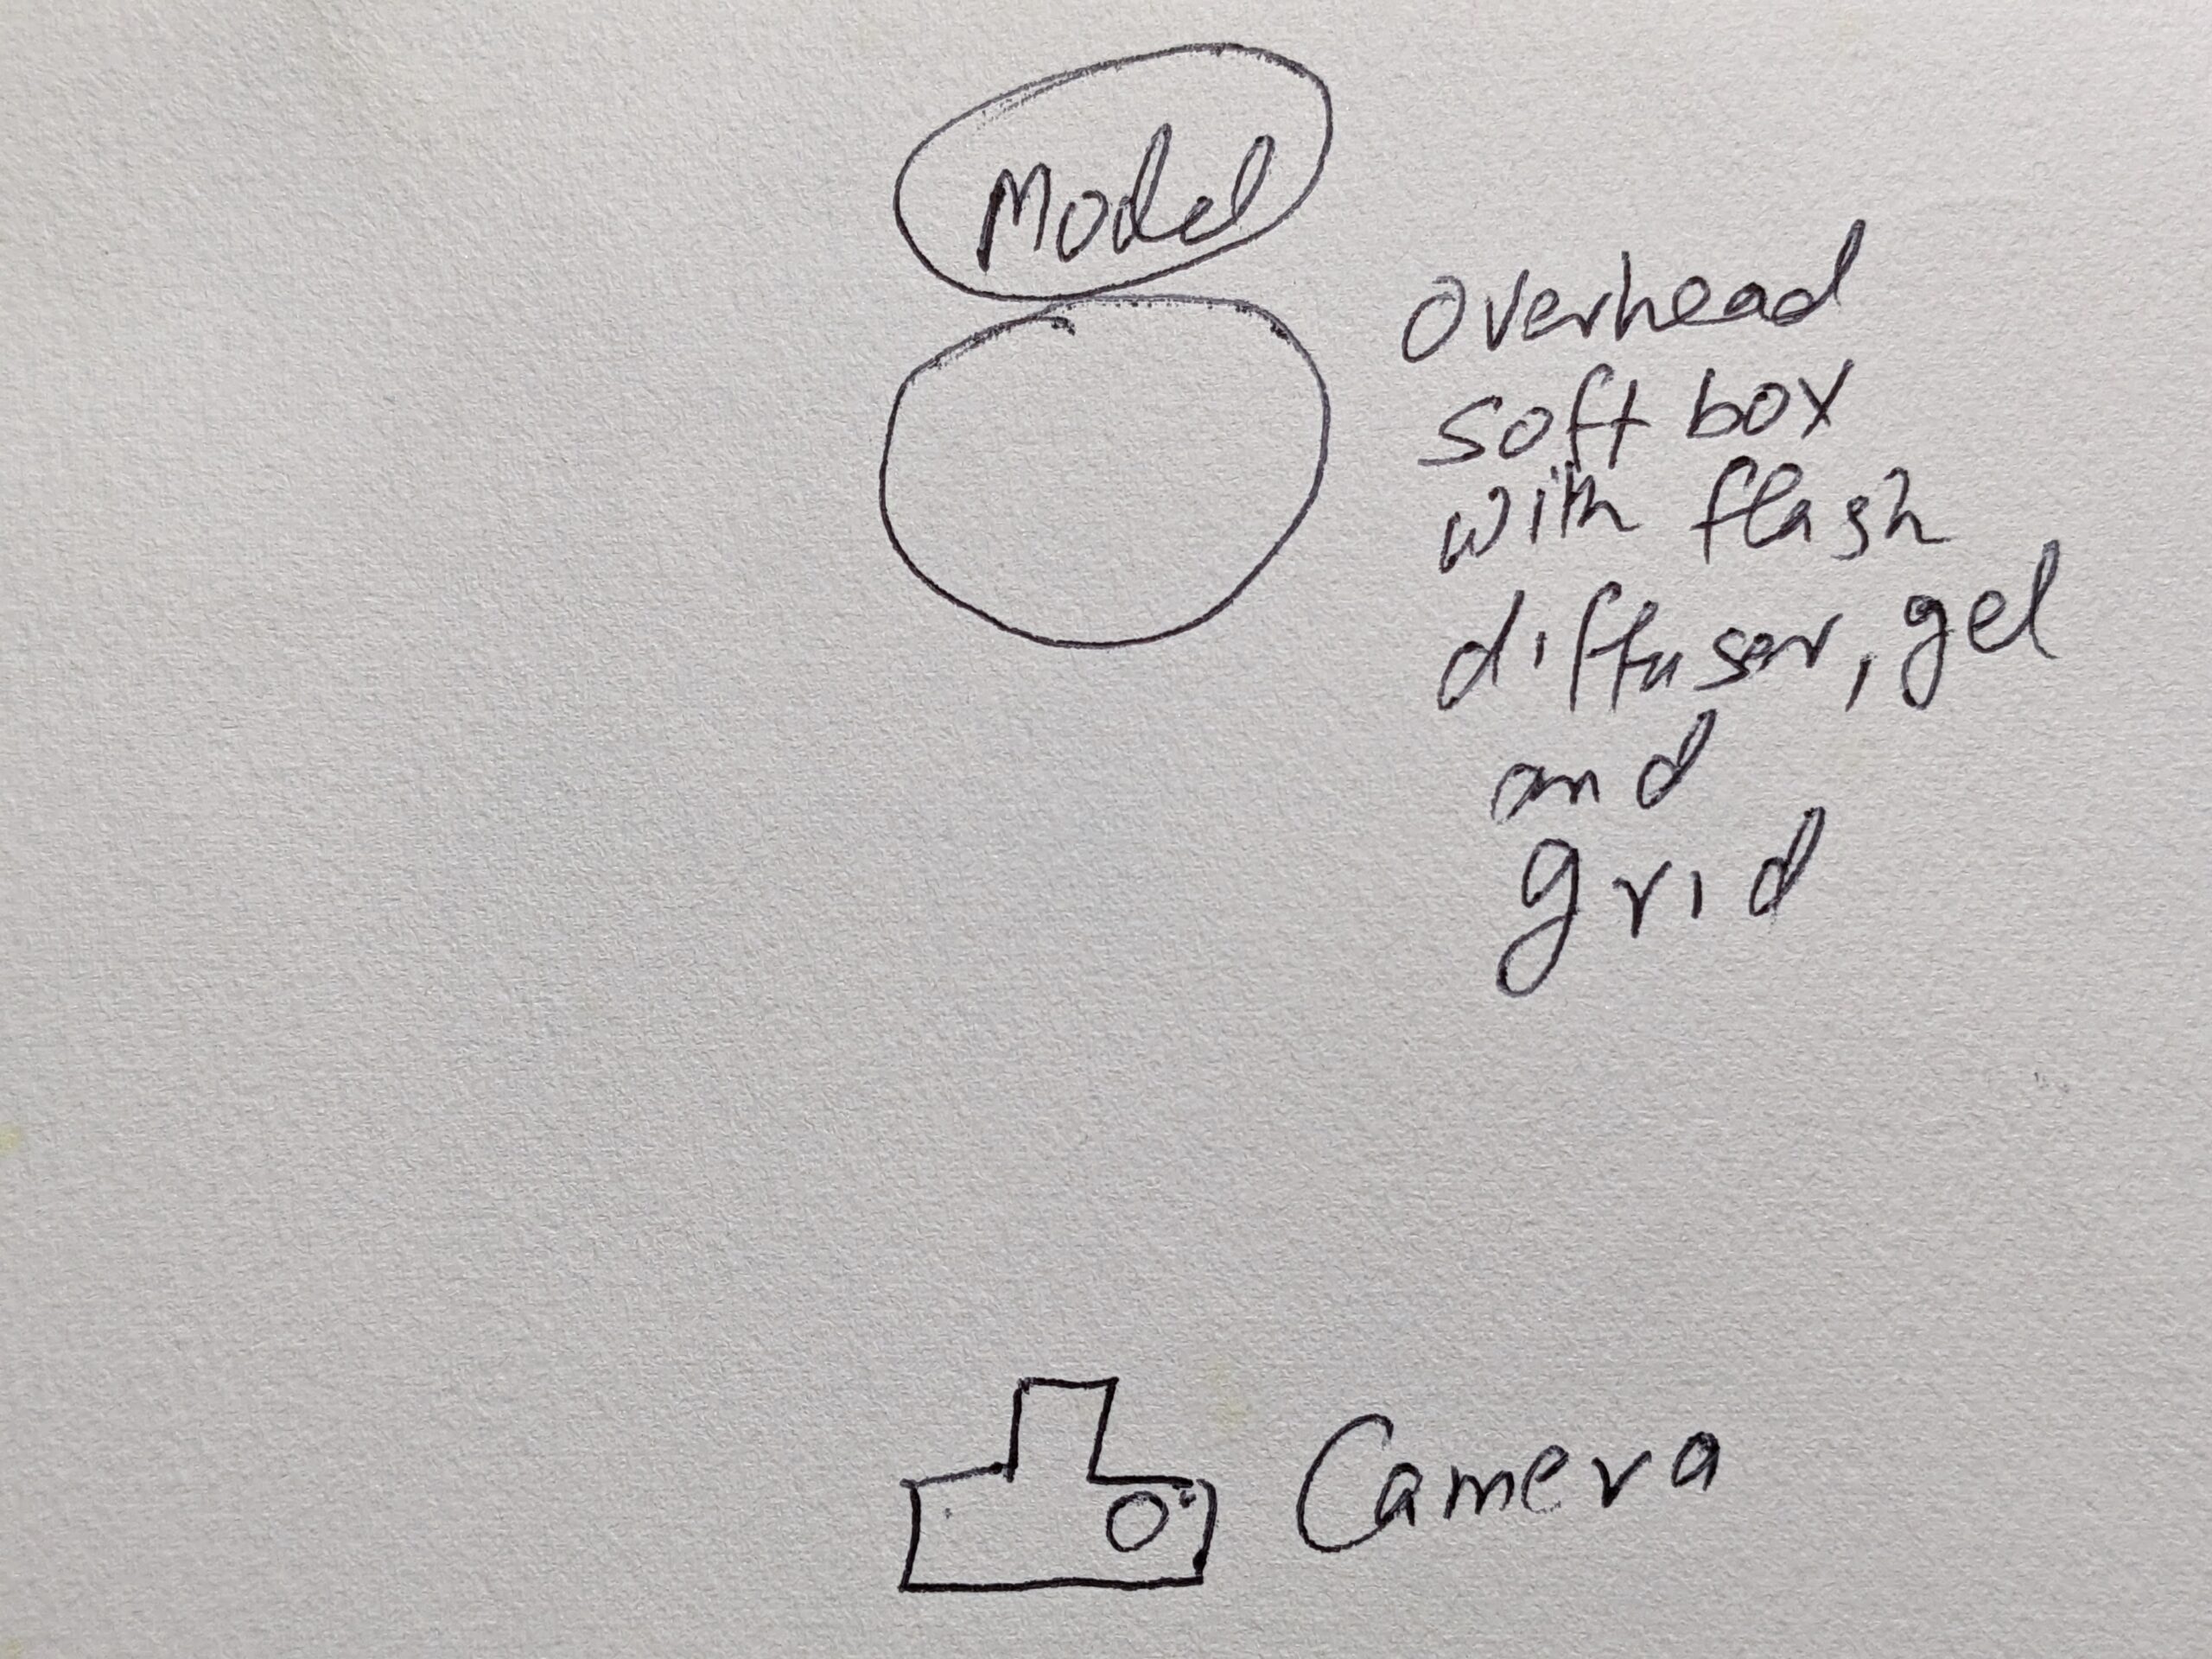 Model
overhead
soft box
with flash
diffuser, gel
and
grid
Camera